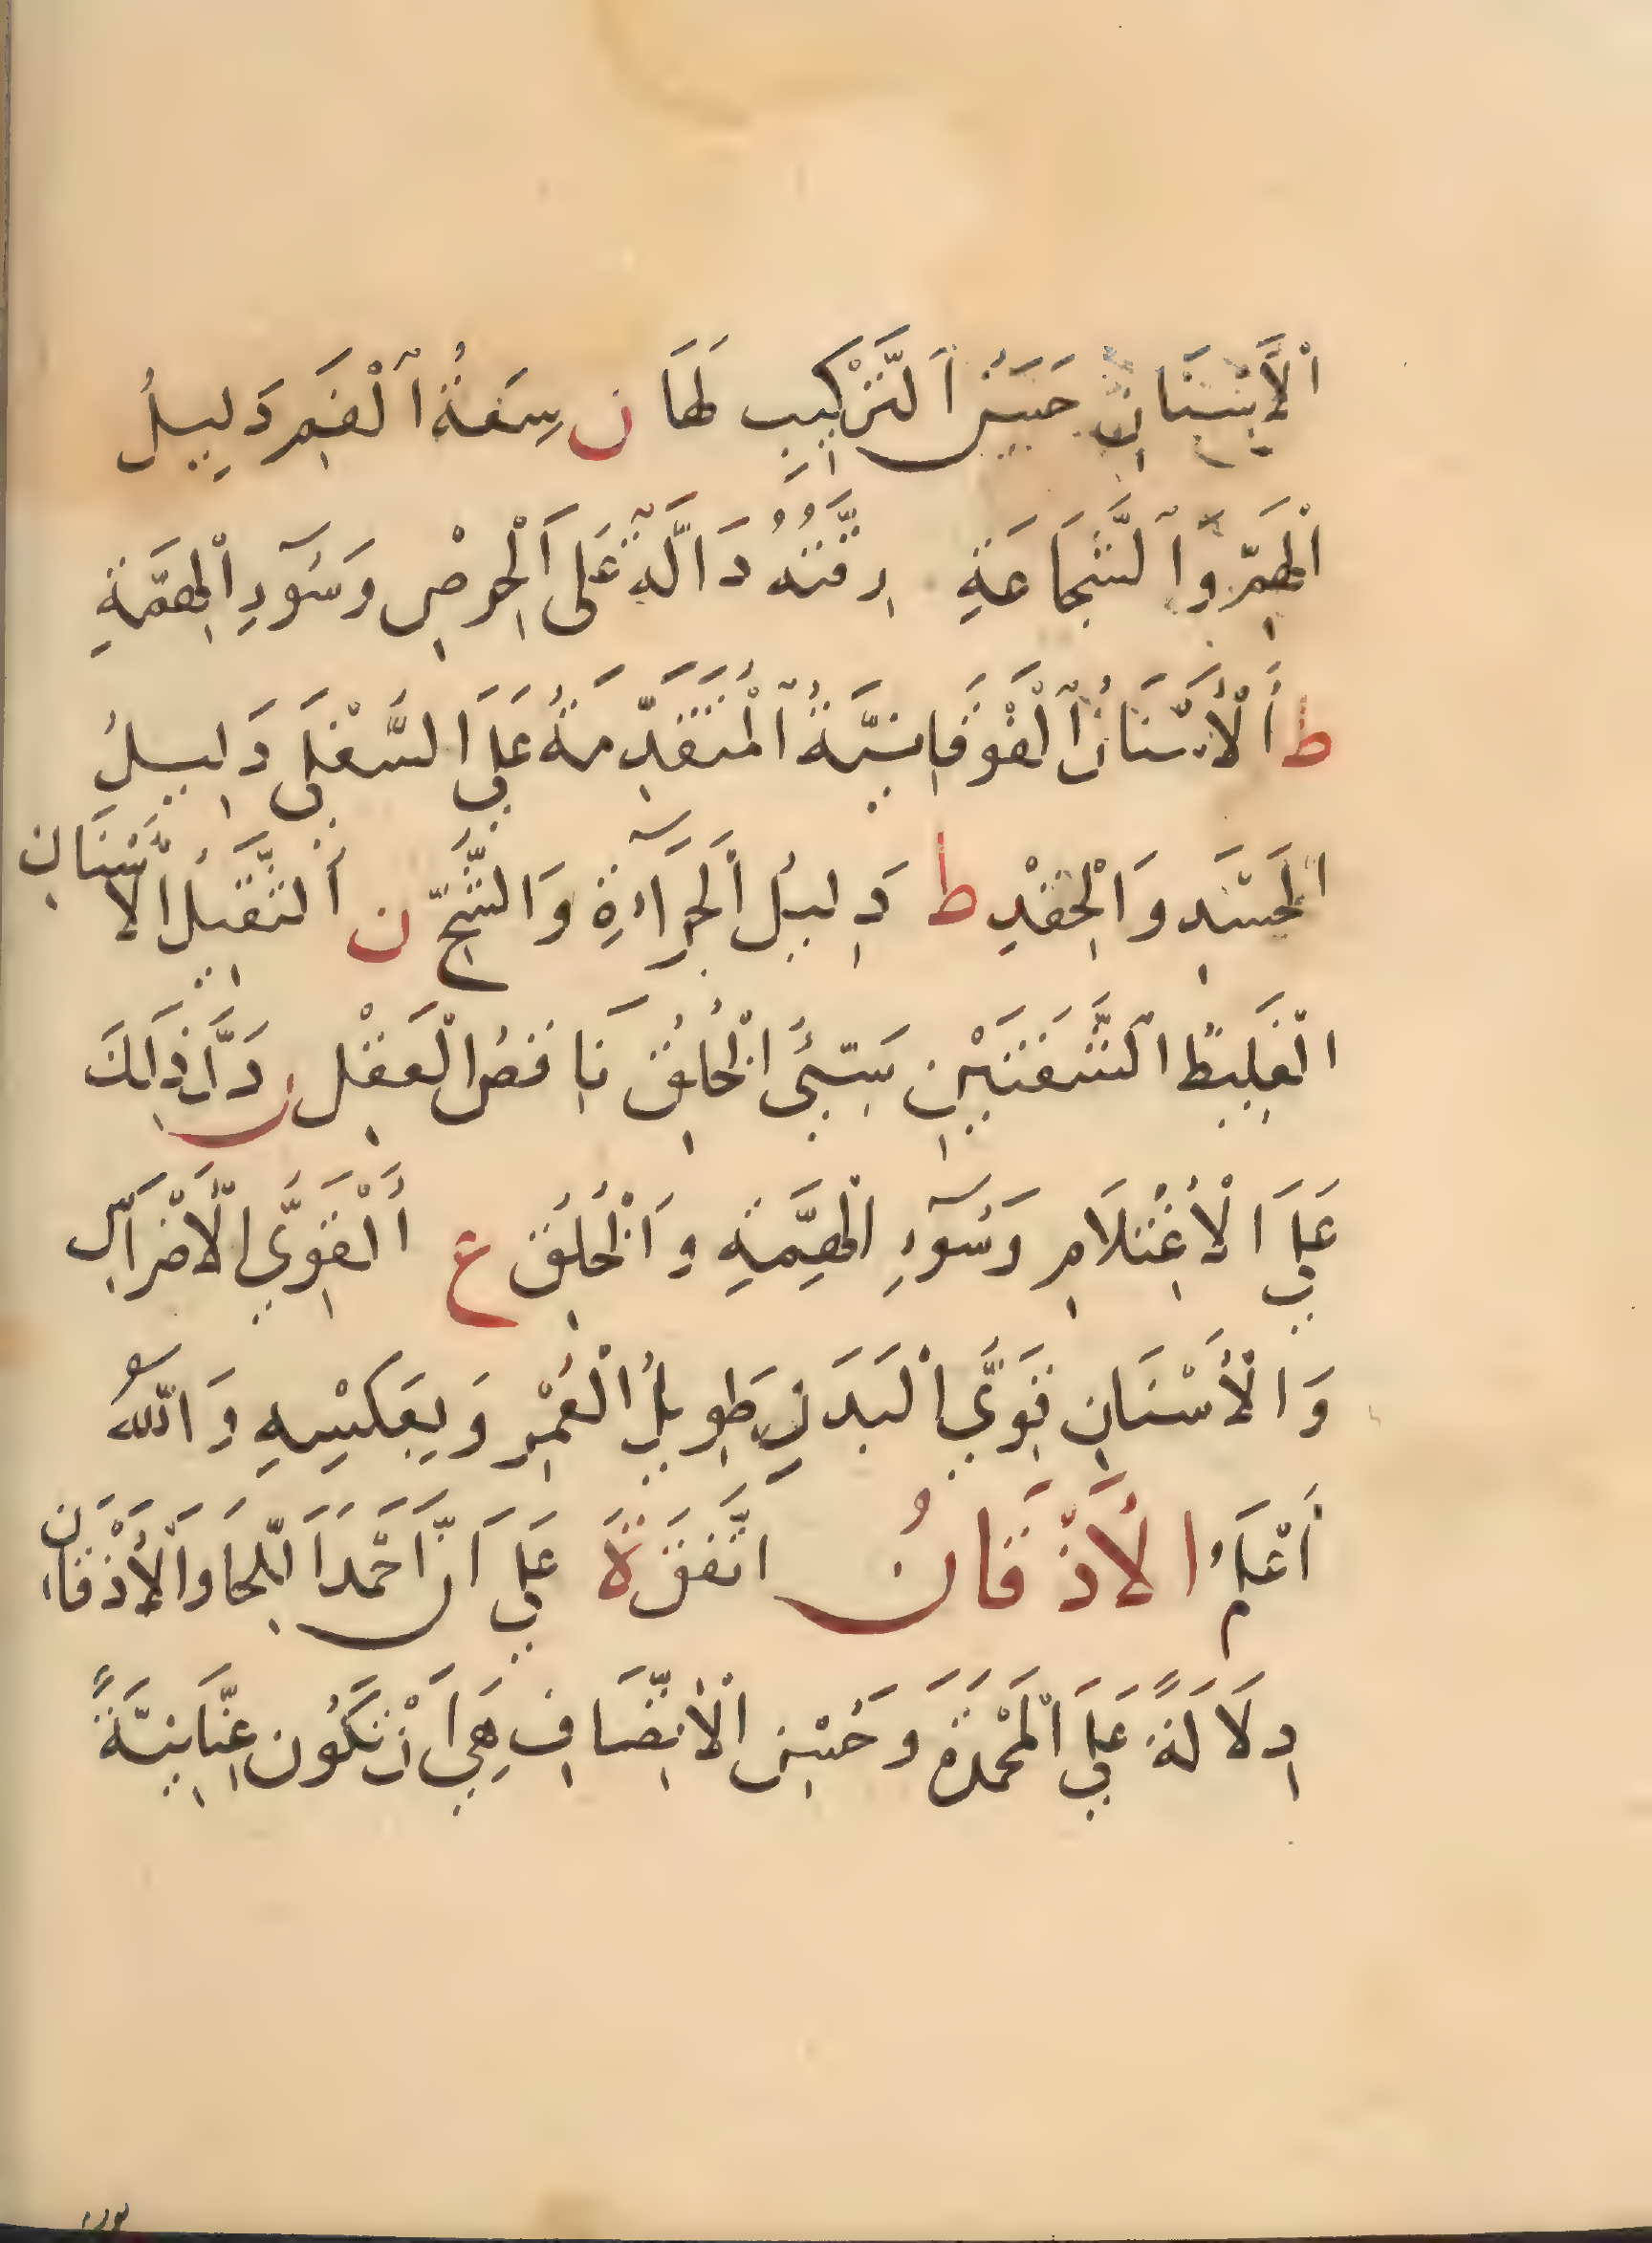 اْلأَسْنَانِ حَسَنُ اَلتَّرْكِيبِ لَهَا ن سِعَةُ اٰلْفَمِ دَلِيلُ
اْلهِمِّ وَاٰلشَّجَاعَةِ رِقَّتُهُ دَالَّة عَلَى اَلْحِرْصِ وَسُوٓءِ اْلهِمَّةِ
ط أَلْأَسْنَانُ اٰلْفَوْقَانِيَّةُ اٰلْمُتَقَدِّمَةُ عَلَي السُّفْلَي دَلِيلُ
الْحَسَدِ وَالْحِقْدِ ط دَلِيلُ الْجَرَآءَةِ وَالشُّحِّ ن أَلثَّقِيلُ الأَسْنَانِ
الْغَلِيظُ الشَّفَتَيْنِ سَيِّئُ الْخُلُقِ نَاقصُ الْعَقْلِ ن دَلَّ ذَلِكَ
عَلَي الْأغْتلَامِ وَسُوٓءِ الْهِمَّةِ وَالْخُلُقِ ع أَلْقَوِيُّ الْأَضْرَاسِ
وَالْأَسْنَانِ قَوِيُّ الْبَدَنِ طَوِيلُ الْعُمْرِ وَبِعَكْسِهِ وَاللّٰهُ
أَعْلَمُ الأَذْقَانُ اتَّفَقَ ةَ عَلَي اَنَّ اَحْمَدَ اَللِّحَا وَالْأَذْقَان
دِلَالَةً عَلَي الْمَحْمَدَة وَحُسْنِ الْاِنْصَافِ هِيَ اَنْ تَكُون عِنَّابِيَّةً